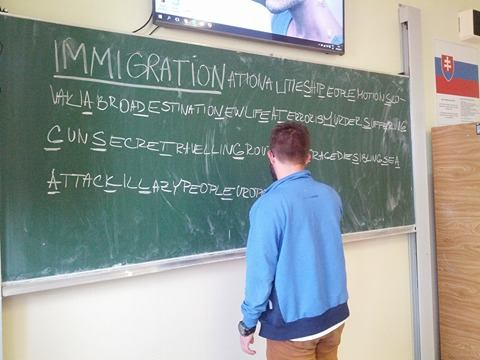 IMMIGRATIONATIONALITIESHIPEOPLEMOTIONSLO-
VAKIABROADESTINATIONEWLIFEATERRORISMURDERSUFFERING
GUNSECRETRAVELLINGROU RAGEDIESIBLINGSEA
ATTACKILLAZYPEOPLEUROP